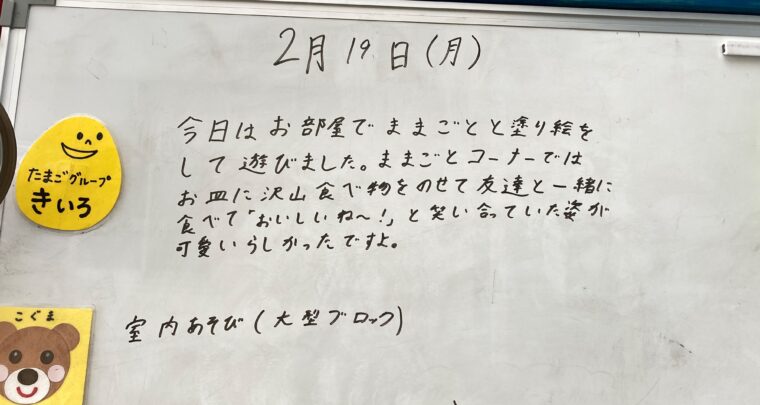 2月19日(月)
今日はお部屋でままごとと塗り絵を
して遊びました。ままごとコーナーでは
お皿に沢山食べ物をのせて友達と一緒に
食べて「おいしいね〜!」と笑い合っていた姿が
可愛いらしかったですよ。
たまごグループ
きいろ
こぐま
室内あそび(大型ブロック)